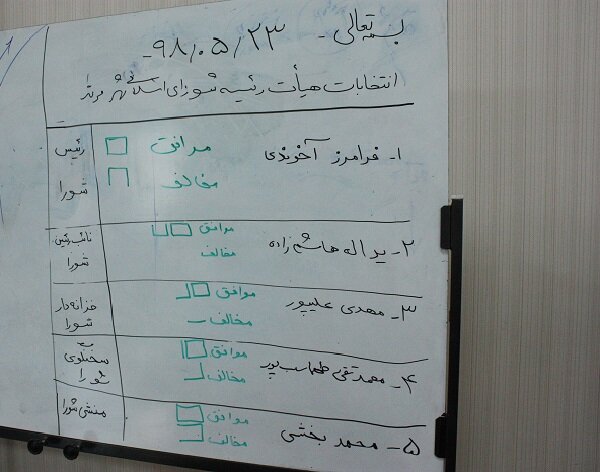 بسمه تعالی - ۹۸/۰۵/۲۳ -
انتخابات هیأت رئیسه شورای اسلامی شهر مرند
۱- فرامرز آخوندی موافق رئیس
مخالف شورا
۲- یداله هاشم زاده موافق نائب رئیس
مخالف شورا
۳- مهدی علیپور موافق خزانه دار
مخالف شورا
۴- محمد تقی طهماسب پور موافق سخنگوی
مخالف شورا
۵- محمد بخشی موافق منشی شورا
مخالف